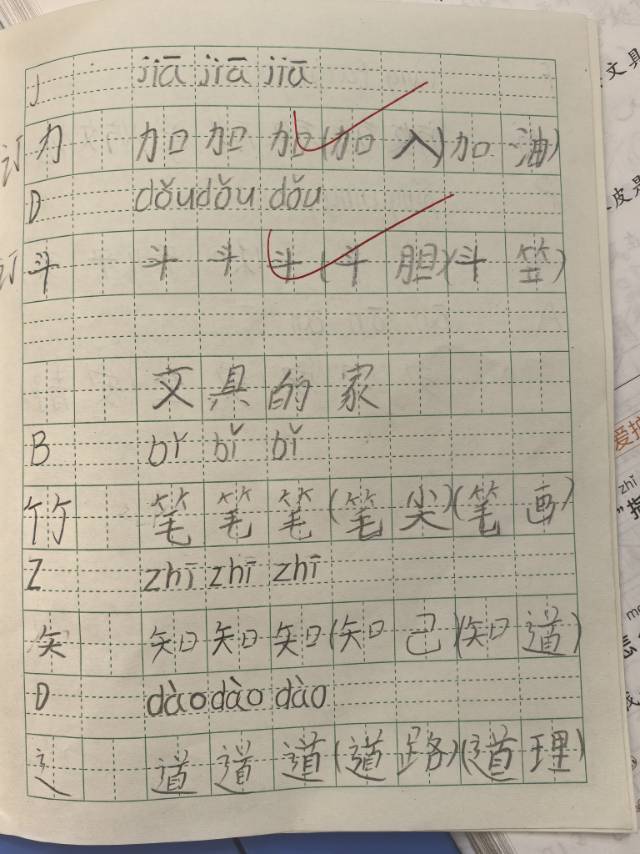 J jiā jiā jiā
力 加 加 加 (加入) (加油)
D dǒu dǒu dǒu
斗 斗 斗 斗 (斗胆) (斗笠)
文具的家
B bǐ bǐ bǐ
竹 笔 笔 笔 (笔尖) (笔画)
Z zhī zhī zhī
矢 知 知 知 (知己) (知道)
D dào dào dào
辶 道 道 道 (道路) (道理)
文具
皮是
爱护
zhī